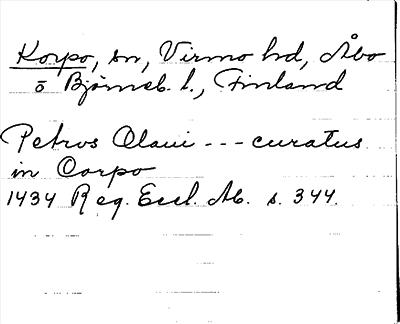 Korpo, sn, Virmo hd, Åbo
o Björneb. l., Finland
Petrus Olaui --- curatus
in Corpo
1434 Reg. Eccl. Ab. s. 344.